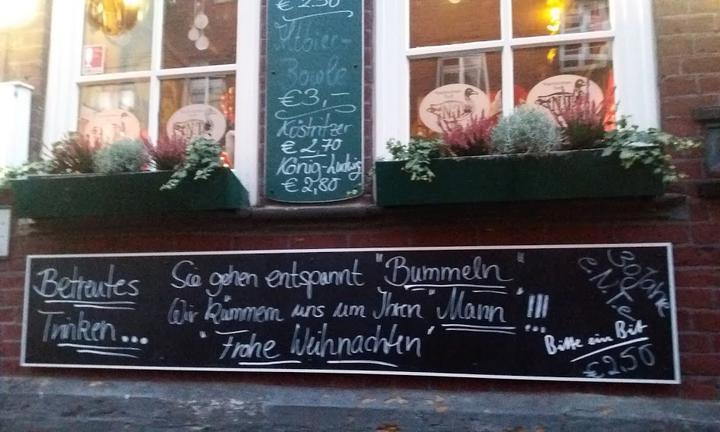 € 2.50
Altbier-
Bowle
€ 3,-
Köstritzer
€ 2.70
König-Ludwig
€ 2,80
ENTE
Betreutes
Trinken...
Sie gehen entspannt "Bummeln"
Wir kümmern uns um Ihren "Mann" !!!
"Frohe Weihnachten" ...
30 Jahre
ENTE
Bitte ein Bit
€ 2,50